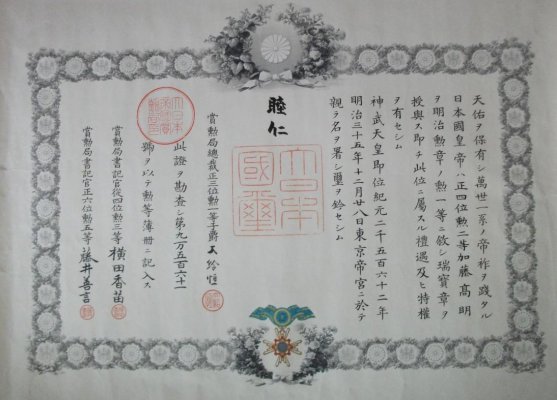 天佑ヲ保有シ萬世一系ノ帝祚ヲ踐タル
日本國皇帝ハ正四位勲二等加藤高明
ヲ明治勲章ノ勲一等ニ敘シ瑞寶章ヲ
授與ス即チ此位ニ属スル禮遇及ヒ特權
ヲ有セシム
神武天皇即位紀元二千五百六十二年
明治三十五年十二月廿八日東京帝宮ニ於テ
親ラ名ヲ署シ璽ヲ鈐セシム
睦仁
大日本
國璽
賞勲局總裁正三位勲一等子爵大給恒
此證ヲ勘査シ第九万五百六十一
號ヲ以テ勲等簿冊ニ記入ス
賞勲局書記官從四位勲三等横田香苗
賞勲局書記官正六位勲五等藤井善言